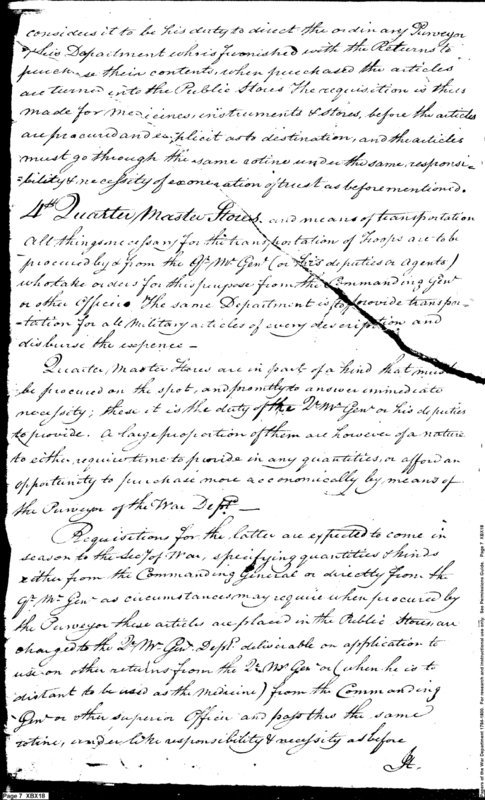 considers it to be his duty to direct the ordinary Purveyor
& his Department who is furnished with the Returns to
purchase their contents, when purchased the articles
are turned into the Public Stores The requisition is thus
made for medicines, instruments & stores, before the articles
are procured and explicit as to destination, and the articles
must go through the same rotine under the same, responsi-
=bility & necessity of exoneration of trust as before mentioned.
4th Quarter Master Stores, and means of transportation
All things necessary for the transportation of Troops are to be
procured by & from the Qr. Mr. Genl (or his deputies or agents)
who take orders for this purpose from the Commanding Genl
or other Officer. The same Department is to provide transpor-
-tation for all Military articles of every description and
disburse the expence –
Quarter Master Stores are in part of a kind that must
be procured on the spot, and promtly to answer immediate
necessity; these it is the duty of the Qr. Mr. Genl or his deputies
to provide. A large proportion of them are however of a nature
to either require time to provide in any quantities, or afford an
opportunity to purchase more aconomically by means of
the Purveyor of the War Dept. –
Requisitions for the latter are expected to come in
season to the Secy of War, specifying quantities & kinds
either from the Commanding General or directly from the
Qr. Mr. Genl as circumstances may require when procured by
the Purveyor these articles are placed in the Public Stores, are
charged to the Qr. Mr. Genl. Dept. deliverable on application to
use on other returns from the Qr. Mr. Genl or (when he is to
distant to be used as the medicine) from the Commanding
Genl or other superior Officer and pass thro the same
rotine, under like responsibility & necessity as before
Page 7 XBX18
Papers of the War Department 1784-1800. For research and instructional use only. See Permissions Guide. Page 7 XBX18